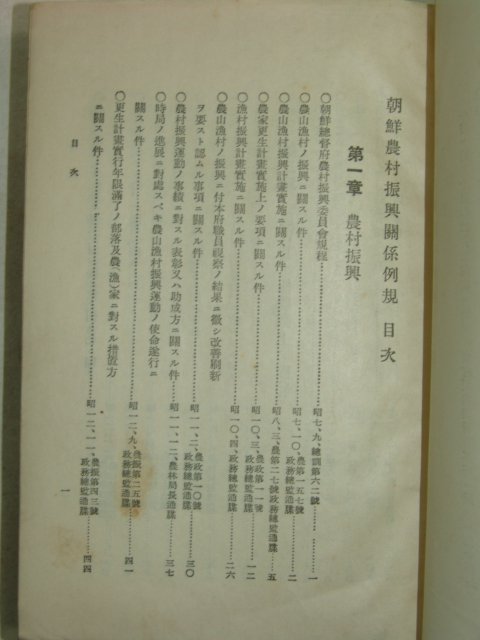 朝鮮農村振興關係例規目次
第一章 農村振興
〇朝鮮總督府農村振興委員會規程…………昭七、九、總訓第六二號……一
〇農山漁村ノ振興ニ關スル件…………昭七、一〇、農第一五七號政務總監通牒……二
〇農山漁村振興計畫實施ニ關スル件…………昭八、三、農第二七號政務總監通牒……五
〇農家更生計畫實施上ノ要項ニ關スル件…………昭一〇、三、農政第一一號政務總監通牒……一二
〇漁村振興計畫實施ニ關スル件…………昭一〇、四、政務總監通牒……二六
〇農山漁村ノ振興ニ付本府職員視察ノ結果ニ徵シ改善刷新
ヲ要スト認ムル事項ニ關スル件…………昭一一、二、農政第一〇號政務總監通牒……三〇
〇農村振興運動ノ事績ニ對スル表彰又ハ助成方ニ關スル件…………昭一一、一二、農林局長通牒……三七
〇時局ノ進展ニ對處スベキ農山漁村振興運動ノ使命遂行ニ
關スル件…………昭一二、九、農振第二五號政務總監通牒……四一
〇更生計畫實行年限滿了ノ部落及農(漁)家ニ對スル措置方
ニ關スル件…………昭一二、一一、農振第四三號政務總監通牒……四四
目次
一